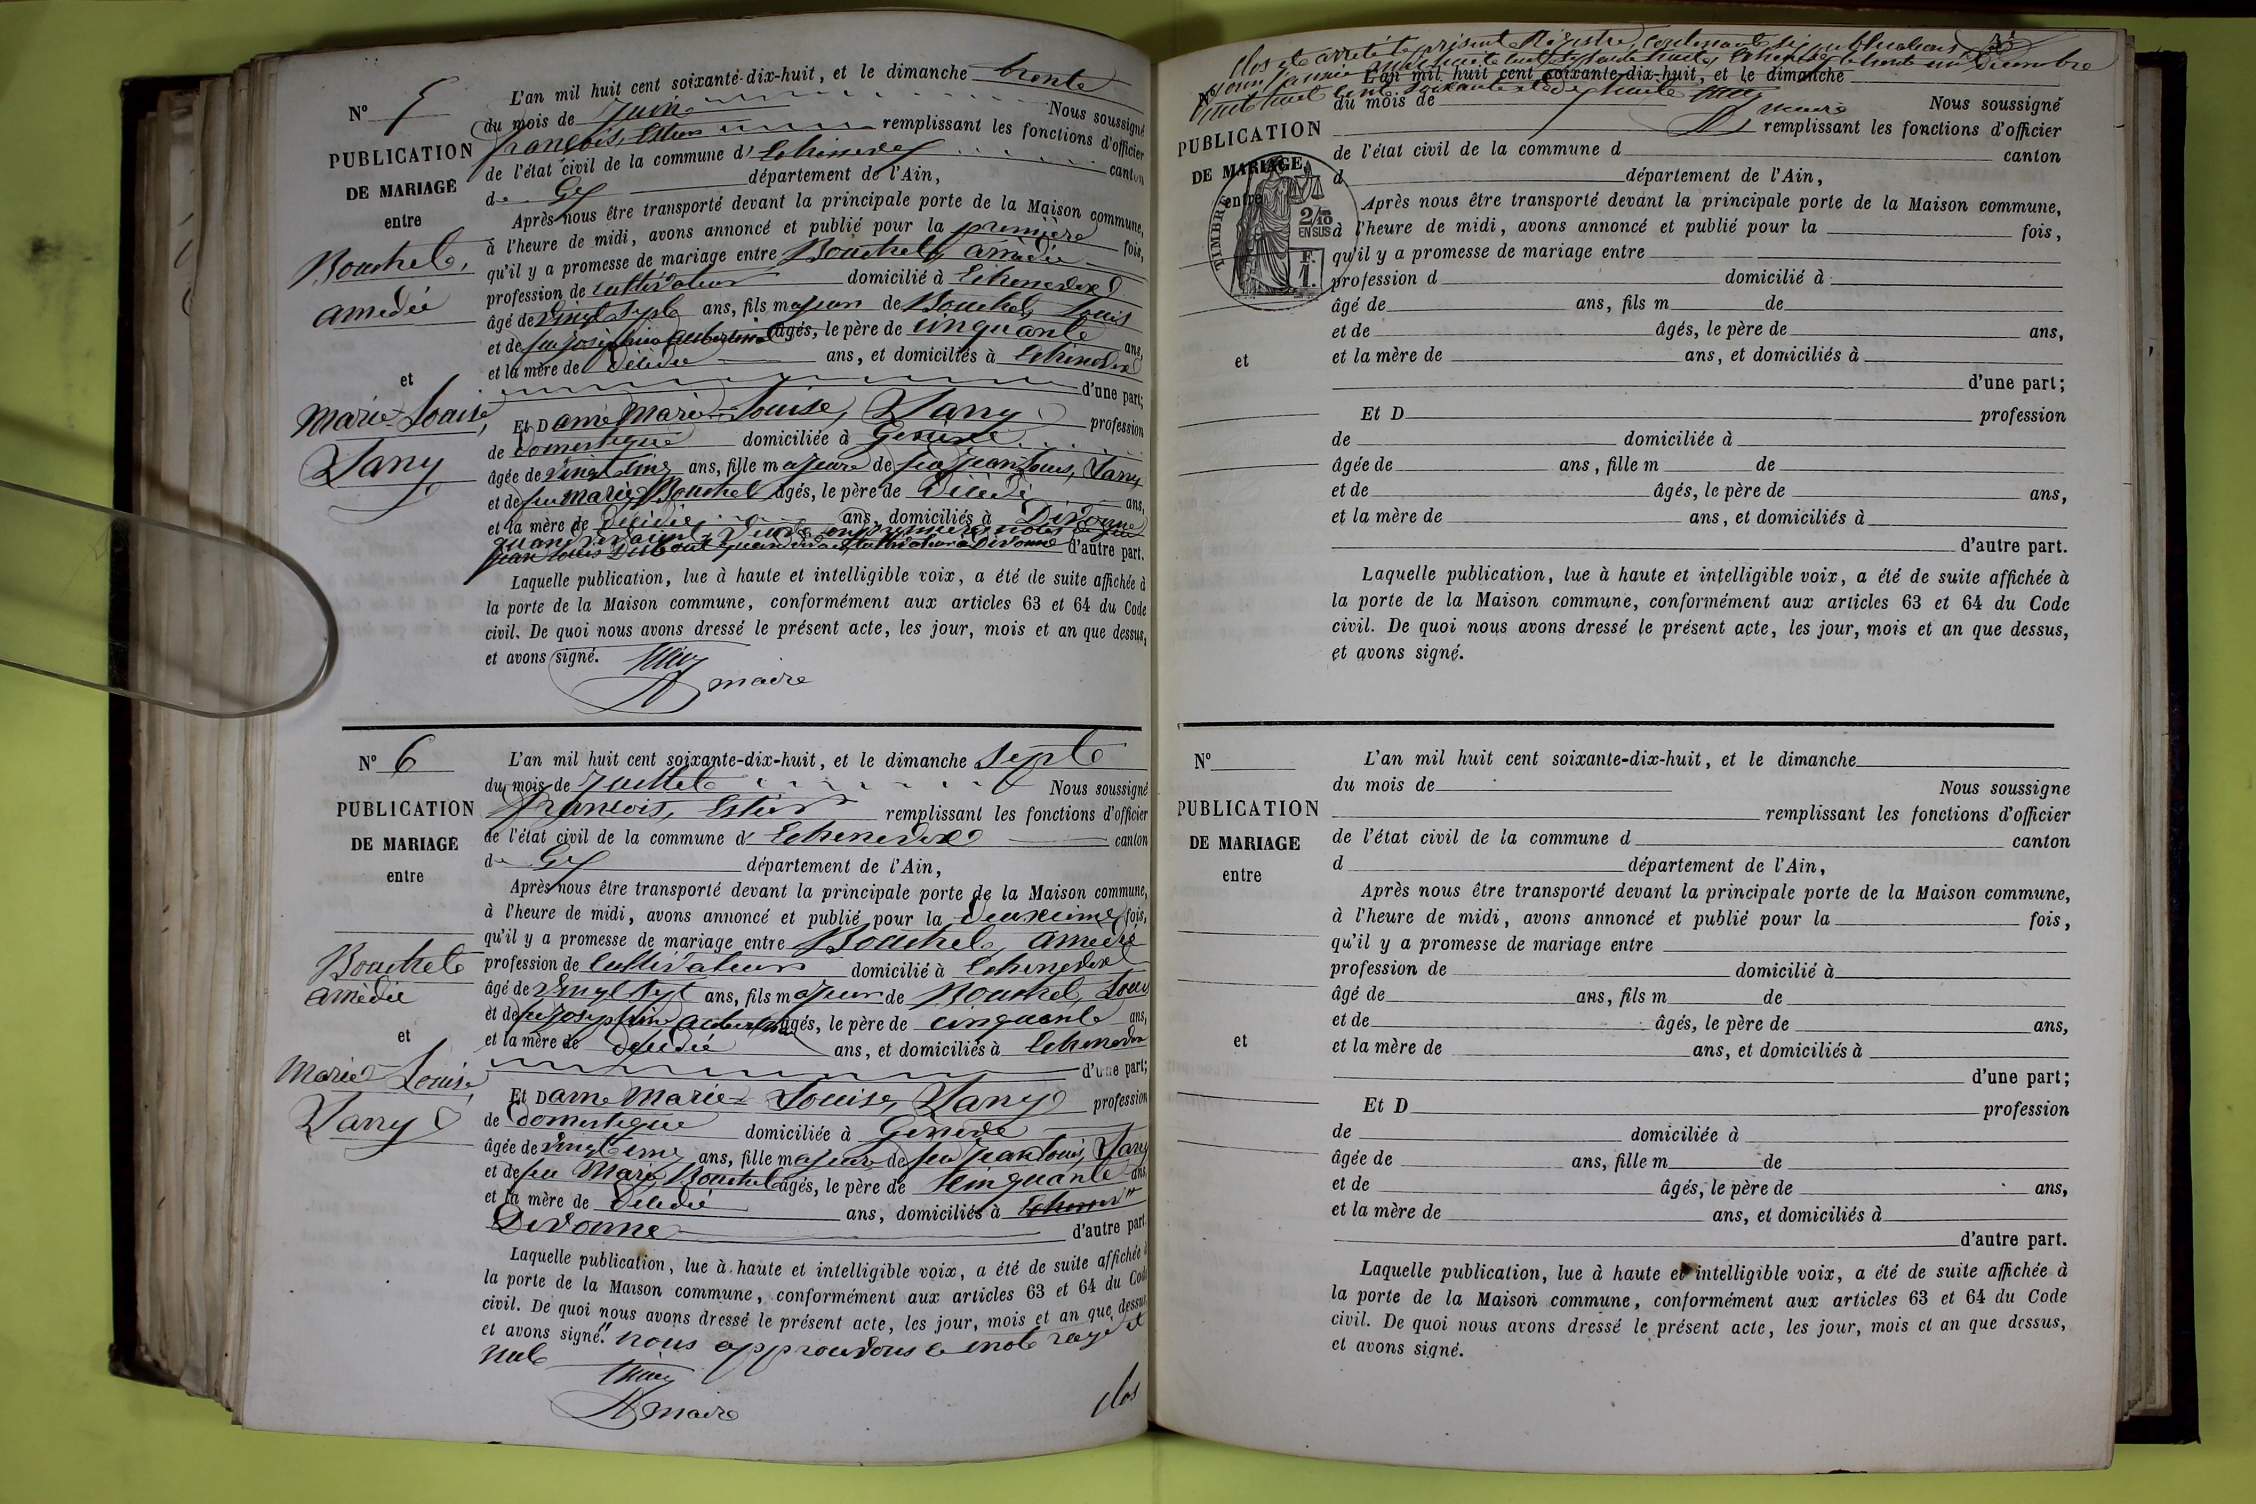 N° 5
PUBLICATION
DE MARIAGE
entre
Bouchet,
amédée
et
Marie Louise,
Vany
L'an mil huit cent soixante-dix-huit, et le dimanche trente
du mois de Juin Nous soussigné
françois, remplissant les fonctions d'officier
de l'état civil de la commune d' Echenevex canton
de Gex département de l'Ain,
Après nous être transporté devant la principale porte de la Maison commune,
à l'heure de midi, avons annoncé et publié pour la première fois,
qu'il y a promesse de mariage entre Bouchet, amédée
profession de cultivateur domicilié à Echenevex
âgé de vingt sept ans, fils majeur de Bouchet, Louis
et de feu joséphine agés, le père de cinquante ans,
et la mère de décédée ans, et domiciliés à Echenevex
d'une part;
Et Dame Marie Louise, Vany profession
de domestique domiciliée à Genève
âgée de vingt cinq ans, fille majeure de feu jean Louis, Vany
et de feu Marie, Bouchet âgés, le père de décédé ans,
et la mère de décédée ans, domiciliés à Divonne
quand vivaient, Veuve en premières noces de feu
jean Louis quand vivait, cultivateur à Divonne d'autre part.
Laquelle publication, lue à haute et intelligible voix, a été de suite affichée à
la porte de la Maison commune, conformément aux articles 63 et 64 du Code
civil. De quoi nous avons dressé le présent acte, les jour, mois et an que dessus,
et avons signé.
maire
N° 6
PUBLICATION
DE MARIAGE
entre
Bouchet
amédée
et
Marie Louise,
Vany
L'an mil huit cent soixante-dix-huit, et le dimanche sept
du mois de Juillet Nous soussigné
françois, remplissant les fonctions d'officier
de l'état civil de la commune d' Echenevex canton
de Gex département de l'Ain,
Après nous être transporté devant la principale porte de la Maison commune,
à l'heure de midi, avons annoncé et publié pour la deuxième fois,
qu'il y a promesse de mariage entre Bouchet, amédée
profession de cultivateur domicilié à Echenevex
âgé de vingt sept ans, fils majeur de Bouchet, Louis
et de feu joséphine agés, le père de cinquante ans,
et la mère de décédée ans, et domiciliés à Echenevex
d'une part;
Et Dame Marie Louise, Vany profession
de domestique domiciliée à Genève
âgée de vingt cinq ans, fille majeure de feu jean Louis, Vany
et de feu Marie, Bouchet âgés, le père de cinquante ans,
et la mère de décédée ans, domiciliés à
Divonne d'autre part.
Laquelle publication, lue à haute et intelligible voix, a été de suite affichée à
la porte de la Maison commune, conformément aux articles 63 et 64 du Code
civil. De quoi nous avons dressé le présent acte, les jour, mois et an que dessus,
et avons signé. nous approuvons le mot rayé
nul
maire
clos
Clos et arrêté le présent Registre, contenant six publications
pour l'année mil huit cent septante huit, Echenevex le trente un Décembre
mil huit cent soixante et dix huit
maire
N°
PUBLICATION
DE MARIAGE
entre
TIMBRE
2/10
EN SUS
F.
1.
et
L'an mil huit cent soixante-dix-huit, et le dimanche
du mois de Nous soussigné
remplissant les fonctions d'officier
de l'état civil de la commune d canton
d département de l'Ain,
Après nous être transporté devant la principale porte de la Maison commune,
à l'heure de midi, avons annoncé et publié pour la fois,
qu'il y a promesse de mariage entre
profession d domicilié à
âgé de ans, fils m de
et de âgés, le père de ans,
et la mère de ans, et domiciliés à
d'une part;
Et D profession
de domiciliée à
âgée de ans, fille m de
et de âgés, le père de ans,
et la mère de ans, et domiciliés à
d'autre part.
Laquelle publication, lue à haute et intelligible voix, a été de suite affichée à
la porte de la Maison commune, conformément aux articles 63 et 64 du Code
civil. De quoi nous avons dressé le présent acte, les jour, mois et an que dessus,
et avons signé.
N°
PUBLICATION
DE MARIAGE
entre
et
L'an mil huit cent soixante-dix-huit, et le dimanche
du mois de Nous soussigne
remplissant les fonctions d'officier
de l'état civil de la commune d canton
d département de l'Ain,
Après nous être transporté devant la principale porte de la Maison commune,
à l'heure de midi, avons annoncé et publié pour la fois,
qu'il y a promesse de mariage entre
profession de domicilié à
âgé de ans, fils m de
et de âgés, le père de ans,
et la mère de ans, et domiciliés à
d'une part;
Et D profession
de domiciliée à
âgée de ans, fille m de
et de âgés, le père de ans,
et la mère de ans, et domiciliés à
d'autre part.
Laquelle publication, lue à haute et intelligible voix, a été de suite affichée à
la porte de la Maison commune, conformément aux articles 63 et 64 du Code
civil. De quoi nous avons dressé le présent acte, les jour, mois et an que dessus,
et avons signé.